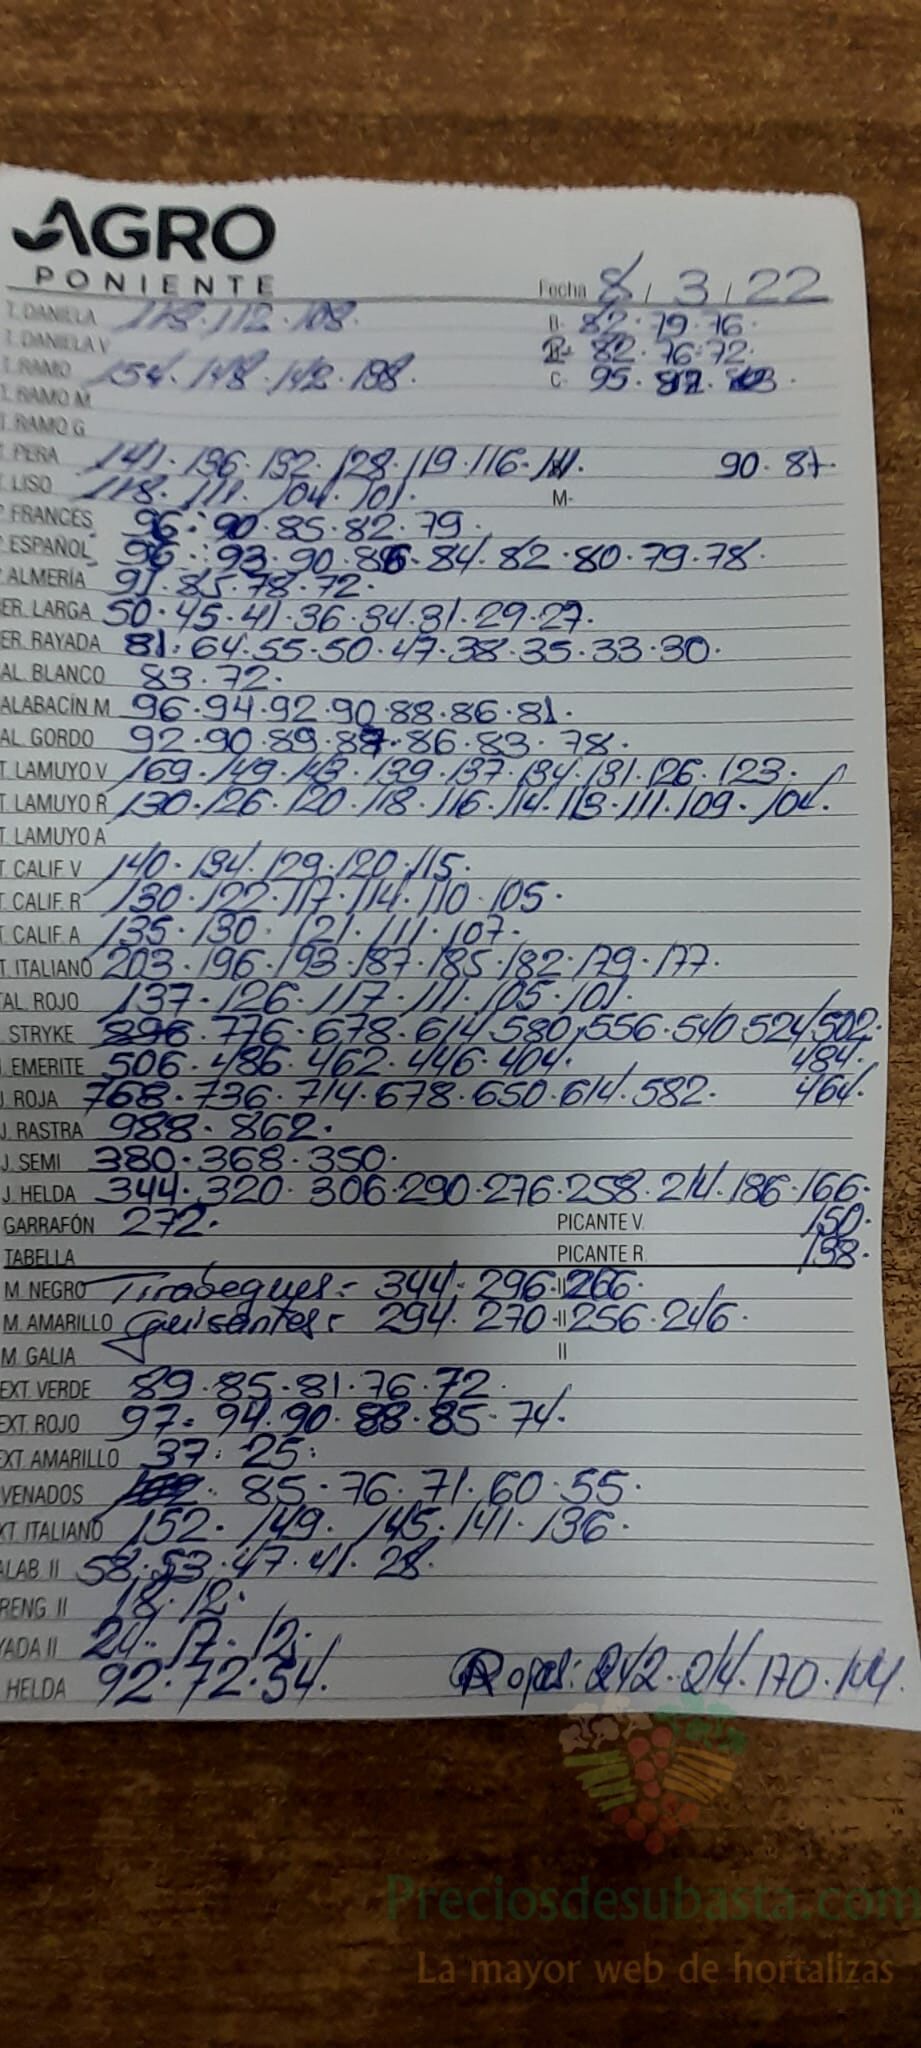 AGRO
PONIENTE
Fecha 8 / 3 / 22
T. DANELA 118. 112. 108. B- 82. 79. 76.
T. DANIELA V R- 82. 76. 72.
T. RAMO 154. 148. 142. 138. C- 95.
T. RAMO M
T. RAMO G
T. PERA 141. 136. 132. 128. 119. 116. 111. 90. 87.
T. LISO 118. 111. 104. 101. M-
P FRANCÉS 96. 90. 85. 82. 79.
P ESPAÑOL 96. 93. 90. 86. 84. 82. 80. 79. 78.
ALMERÍA 91. 85. 78. 72.
ER. LARGA 50. 45. 41. 36. 34. 31. 29. 27.
ER. RAYADA 81. 64. 55. 50. 47. 38. 35. 33. 30.
AL. BLANCO 83. 72.
ALABACÍN M 96. 94. 92. 90. 88. 86. 81.
AL. GORDO 92. 90. 89. 87. 86. 83. 78.
T. LAMUYO V 169. 149. 143. 139. 137. 134. 131. 126. 123.
T. LAMUYO R 130. 126. 120. 118. 116. 114. 113. 111. 109. 104.
T. LAMUYO A
T. CALIF. V 140. 134. 129. 120. 115.
T. CALIF. R 130. 122. 117. 114. 110. 105.
T. CALIF. A 135. 130. 121. 111. 107.
T. ITALIANO 203. 196. 193. 187. 185. 182. 179. 177.
TAL. ROJO 137. 126. 117. 111. 105. 101.
STRYKE 896. 776. 678. 614. 580. 556. 540. 524. 502.
J. EMERITE 506. 486. 462. 446. 404. 484.
J. ROJA 768. 736. 714. 678. 650. 614. 582. 464.
J. RASTRA 988. 862.
J. SEMI 380. 368. 350.
J. HELDA 344. 320. 306. 290. 276. 258. 214. 186. 166.
GARRAFÓN 272. PICANTE V. 150.
TABELLA PICANTE R. 138.
M. NEGRO Tirabeques = 344. 296. II 266.
M. AMARILLO Guisantes = 294. 270. II 256. 246.
M. GALIA II
EXT. VERDE 89. 85. 81. 76. 72.
EXT. ROJO 97. 94. 90. 88. 85. 74.
EXT. AMARILLO 37. 25.
VENADOS 85. 76. 71. 60. 55.
XT. ITALIANO 152. 149. 145. 141. 136.
ALAB. II 58. 53. 47. 41. 28.
RENG. II 18. 12.
YADA II 24. 17. 12.
HELDA 92. 72. 54. Rojas: 242. 214. 170. 144.
Preciosdesubasta.com
La mayor web de hortalizas